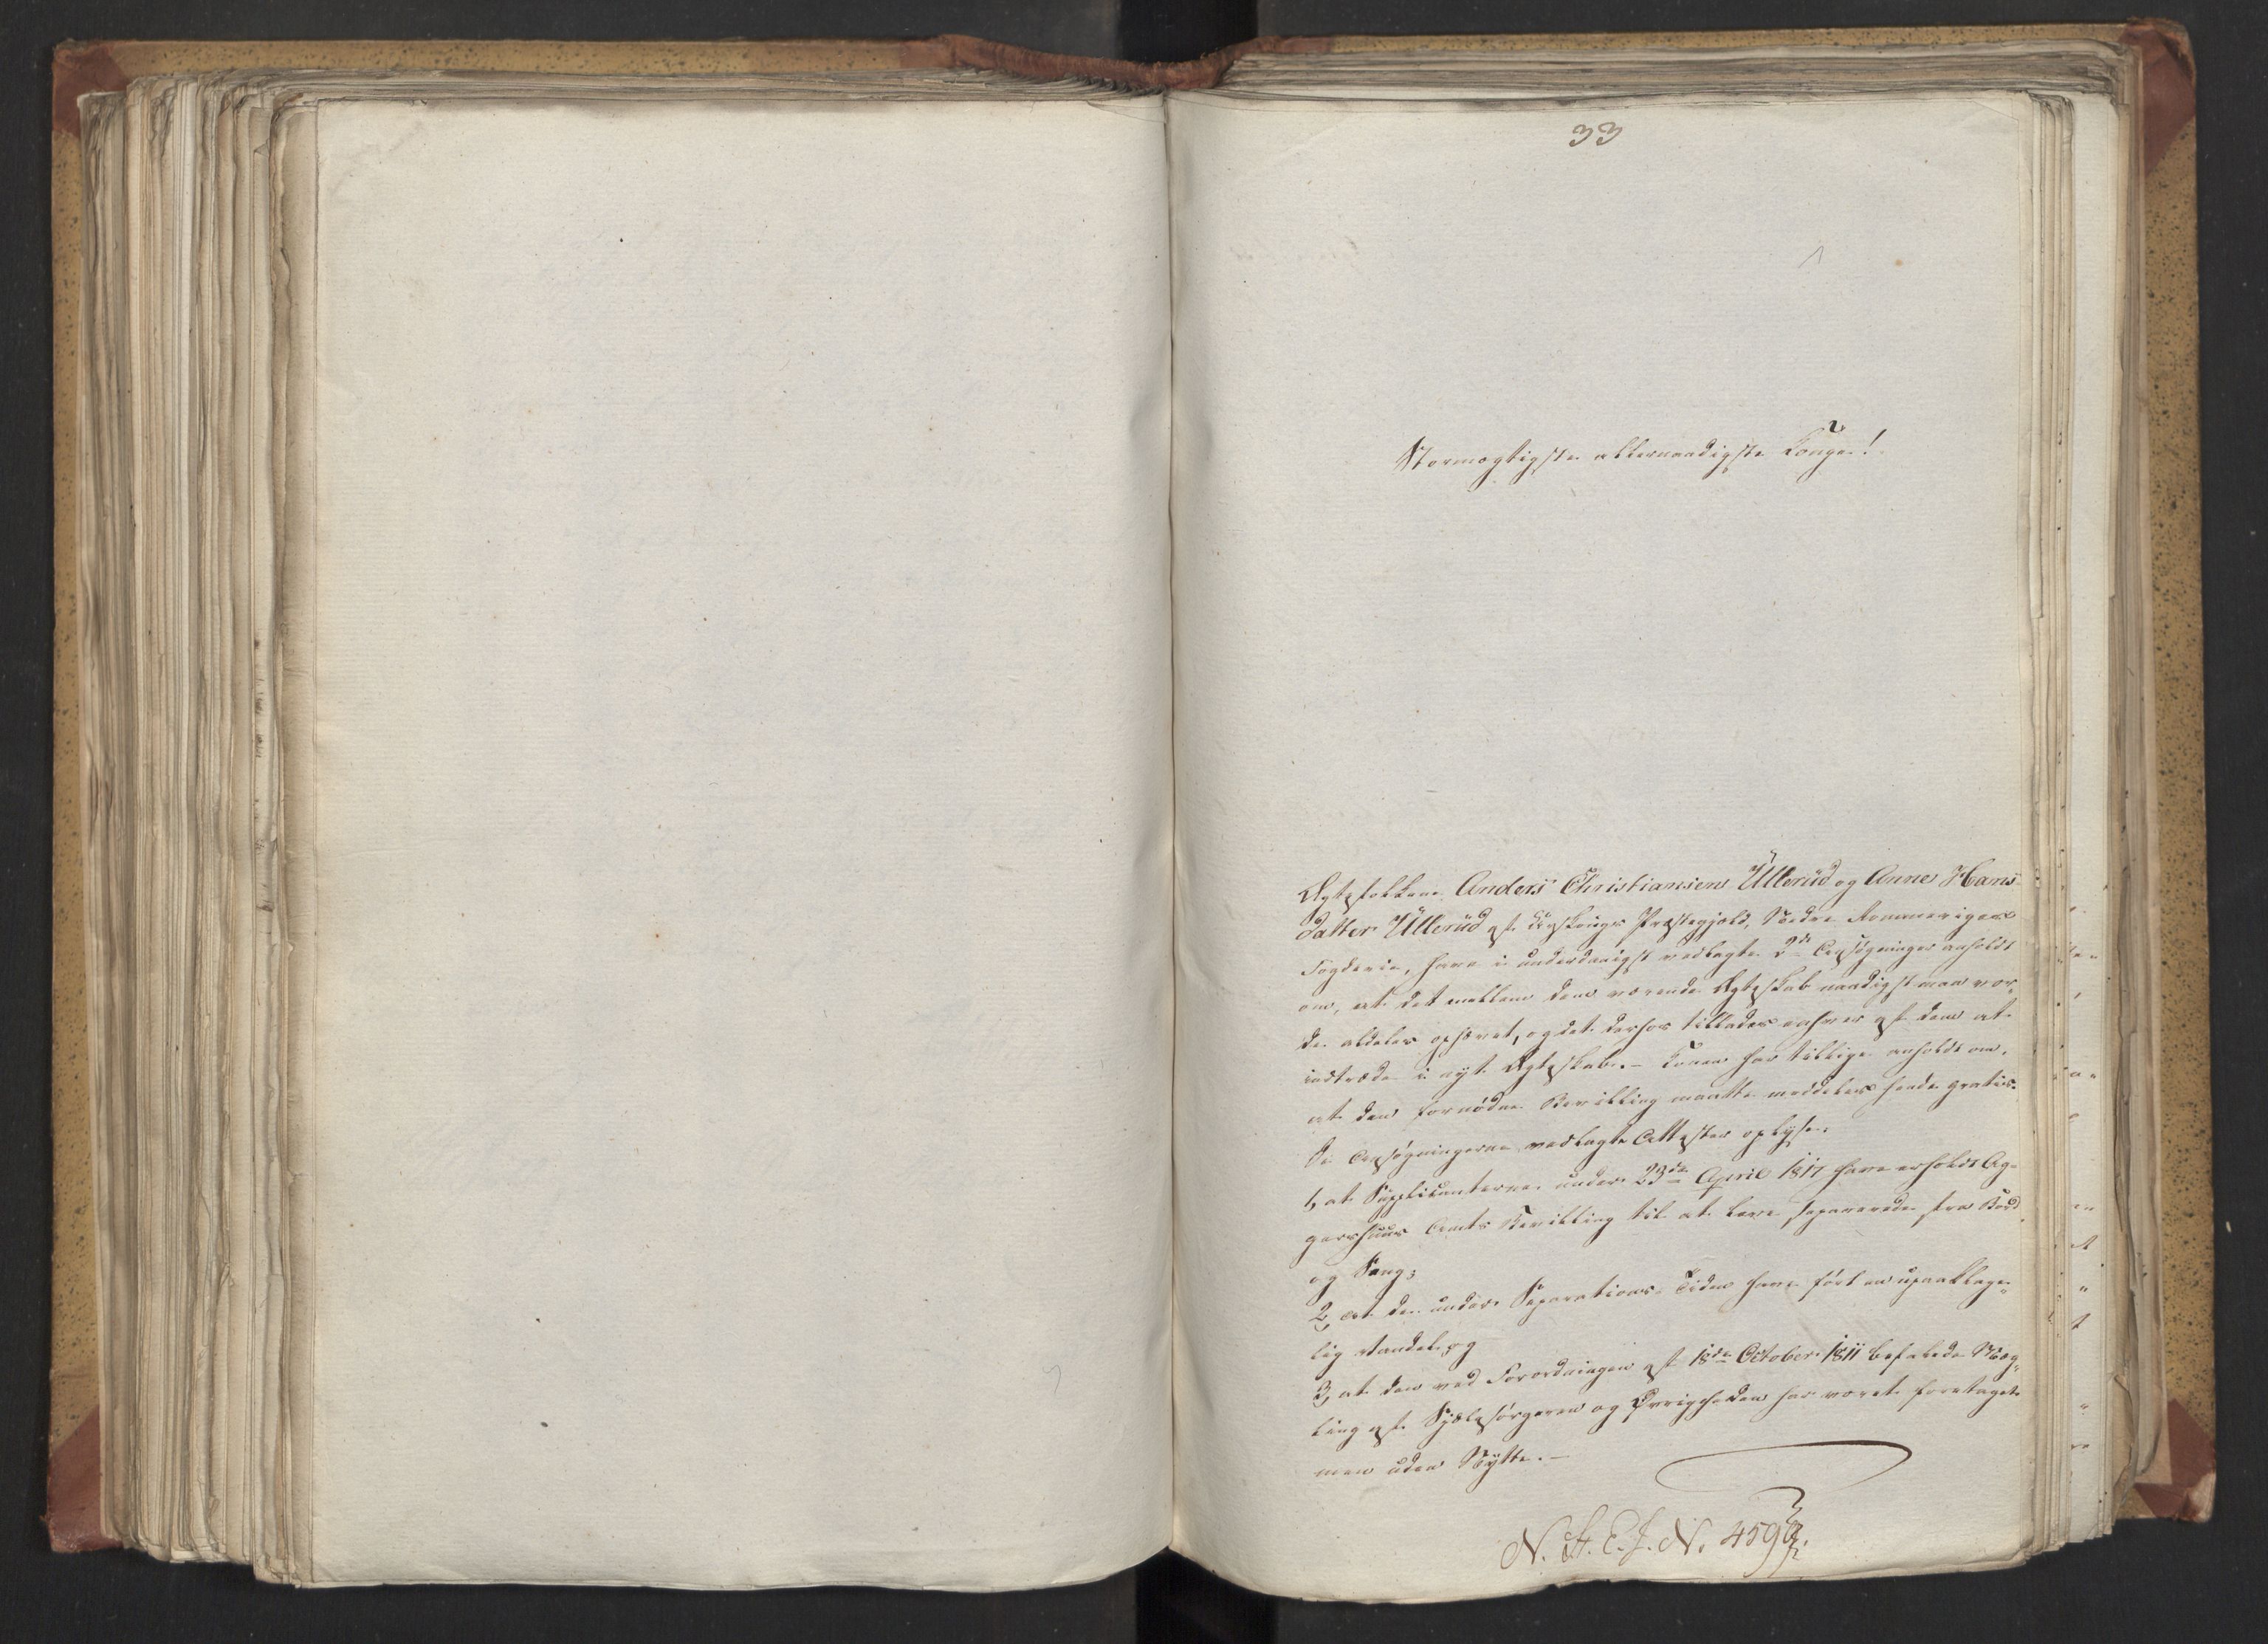 33
Stormægtigste allernaadigste Konge!
Ægtefolkene Anders Christiansen Ullerud og Anne Hans
datter Ullerud af Urskougs Præstegjeld, Nedre Romeriges
Fogderie, have i underdanigst vedlagte 2de Ansøgninger anholdt
om, at det mellem dem værende Ægteskab naadigst maa vor-
de aldeles ophævet, og det derhos tillades enhver af dem at
indtræde i nyt Ægteskab. - Konen har tillige anholdt om,
at den fornødne Bevilling maatte meddeles hende gratis.
De Ansøgningerne vedlagte Attester oplyse:
1, at Supplicanterne under 23de April 1817 have erholdt Ag-
gershuus Amts Bevilling til at leve separerede fra Bord
og Seng;
2, at de under Separations-Tiden have ført en upaaklage-
lig Vandel, og
3, at den ved Forordningen af 18de October 1811 befalede Mæg-
ling af Sjælesørgeren og Øvrigheden har været foretaget
men uden Nytte. -
N. A. E. J. N. 459